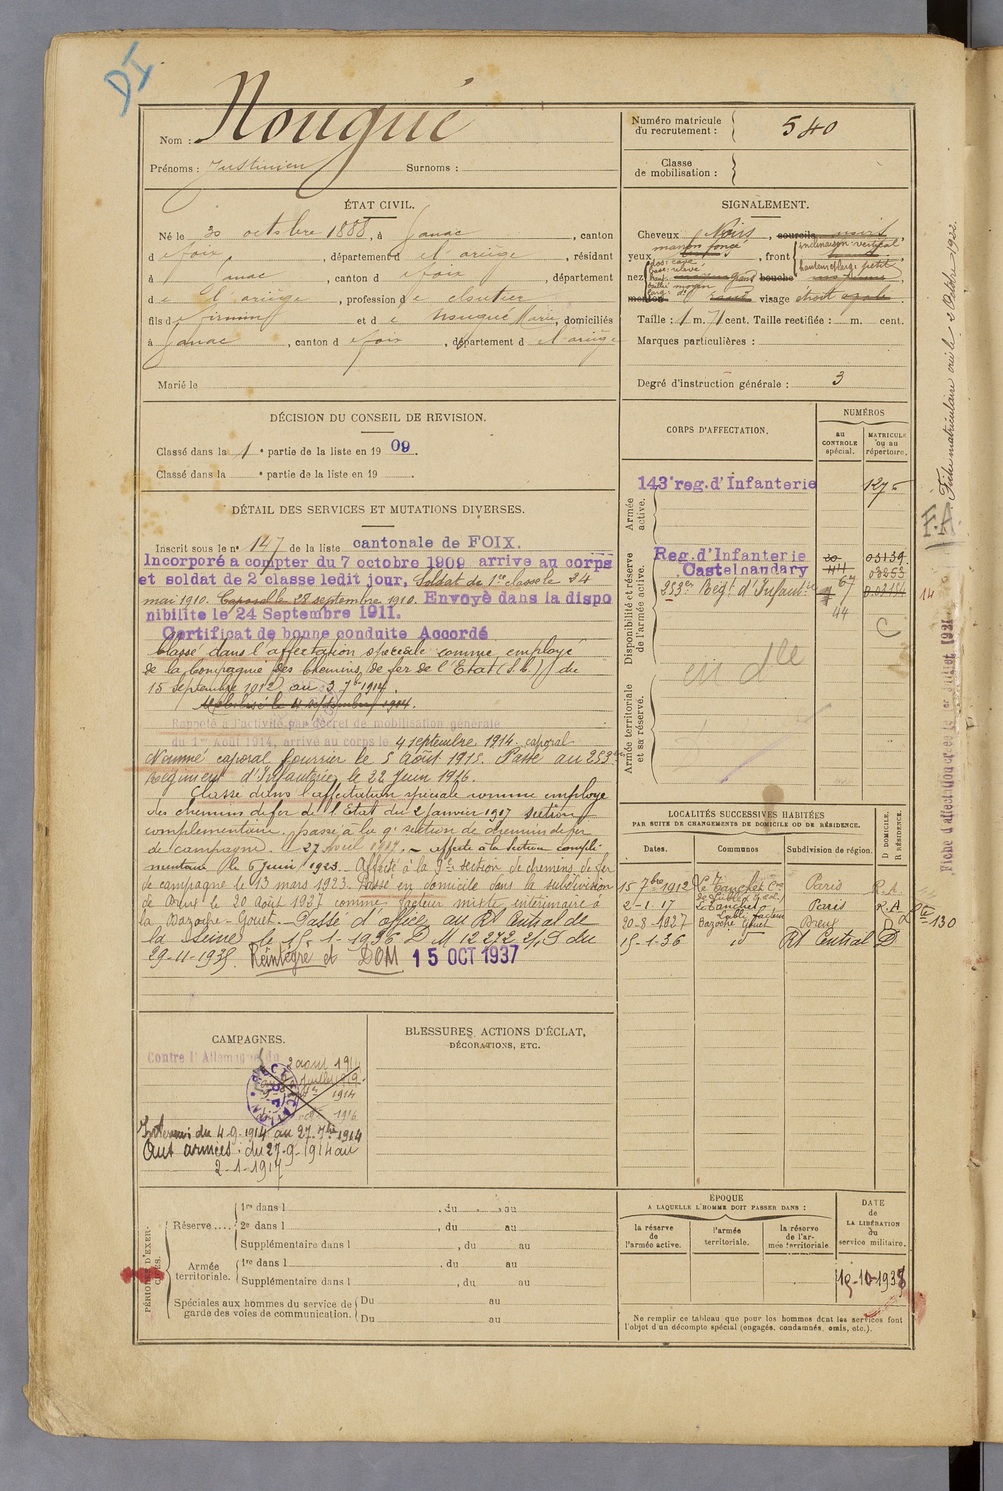 DI
Nom : Nougué
Prénoms : Justinien Surnoms :
Numéro matricule
du recrutement : 540
Classe
de mobilisation :
ÉTAT CIVIL.
Né le 30 octobre 1888, à Ganac, canton
de Foix, département de l'ariège, résidant
à Ganac, canton de Foix, département
de l'ariège, profession de
fils de Firmin et de Nougué Marie, domiciliés
à Ganac, canton de Foix, département de l'ariège
Marié le
SIGNALEMENT.
Cheveux Noirs, sourcils noirs
yeux marron foncé, front inclinaison vertical
hauteur et larg. petite
nez dos: cave
base: relevé
bouche
moyen
menton visage étroit
Taille : 1 m. 71 cent. Taille rectifiée : m. cent.
Marques particulières :
Degré d'instruction générale : 3
DÉCISION DU CONSEIL DE REVISION.
Classé dans la 1e partie de la liste en 1909.
Classé dans la e partie de la liste en 19 .
DÉTAIL DES SERVICES ET MUTATIONS DIVERSES.
Inscrit sous le n° 147 de la liste cantonale de FOIX.
Incorporé a compter du 7 octobre 1909 arrive au corps
et soldat de 2e classe ledit jour. Soldat de 1re classe le 24
mai 1910. Caporal le 28 septembre 1910. Envoyè dans la dispo
nibilite le 24 Septembre 1911.
Certificat de bonne conduite Accordé
Classé dans l'affectation spéciale comme employé
de la Compagnie des Chemins de fer de l'Etat (S.C.) du
15 septembre 1912 au 3 7bre 1914.
Mobilisé le 4 septembre 1914.
Rappelé à l'activité par décret de mobilisation générale
du 1er Août 1914, arrivé au corps le 4 septembre 1914. caporal
Nommé caporal fourrier le 5 Août 1915. Passé au 253e
Régiment d'Infanterie le 22 Juin 1916.
Classé dans l'affectation spéciale comme employé
des chemins de fer de l'Etat du 2 Janvier 1917 section
complémentaire. passé à la 9e section de chemin de fer
de campagne. le 27 Avril 1919. - affecté à la section complé-
mentaire le 6 Juin 1923. Affecté à la 9e section de chemins de fer
de campagne le 13 mars 1923. Passé en domicile dans la subdivision
de Dreux le 20 Août 1927 comme facteur mixte intérimaire à
la Bazoche-Gouet. Passé d'office au Rt Central de
la Seine le 15-1-1936 D M 12 272 2/S du
29-11-1935. Réintégré et DOM 15 OCT 1937
CORPS D'AFFECTATION.
NUMÉROS
au
CONTROLE
spécial.
MATRICULE
ou au
répertoire.
Armée
active.
143e reg. d'Infanterie 1275
Disponibilité et réserve
de l'armée active.
Reg. d'Infanterie
Castelnaudary
253e Régt d'Infanterie
67
44
C
en dle
Armée territoriale
et sa réserve.
LOCALITÉS SUCCESSIVES HABITÉES
PAR SUITE DE CHANGEMENTS DE DOMICILE OU DE RÉSIDENCE.
Dates. Communes Subdivision de région. D DOMICILE. R RÉSIDENCE.
15 7bre 1912 Paris R.A.
2-1-17 Paris R.A
20-8-1927 Bazoche Gouet Dreux D
15-1-36 id Rt Central D
130
CAMPAGNES.
Contre l'Allemagne du
2 août 1914
Interieur du 4-9-1914 au 27-7bre 1914
Aux armées : du 27-9-1914 au
2-1-1917
BLESSURES, ACTIONS D'ÉCLAT,
DÉCORATIONS, ETC.
PÉRIODES D'EXER-
CICES.
Réserve ....
1re dans l , du au
2e dans l , du au
Supplémentaire dans l , du au
Armée
territoriale.
1re dans l , du au
Supplémentaire dans l , du au
Spéciales aux hommes du service de
garde des voies de communication.
Du au
Du au
ÉPOQUE
A LAQUELLE L'HOMME DOIT PASSER DANS :
la réserve
de
l'armée active.
l'armée
territoriale.
la réserve
de l'ar-
mée territoriale
DATE
de
LA LIBÉRATION
du
service militaire.
15-10-1938
Ne remplir ce tableau que pour les hommes dont les services font
l'objet d'un décompte spécial (engagés, condamnés, omis, etc.).
F.A.
Fiche matriculaire créée 2 Octobre 1922.
14
Fiche d'affectation créée le 1er Juillet 1921